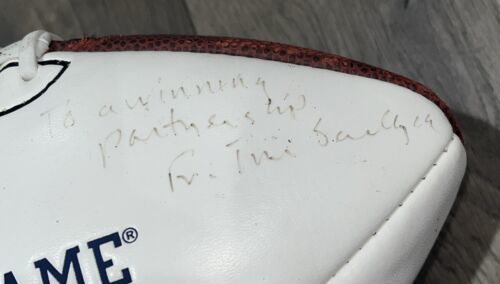 To a winning
partnership
Fr. Tim Scully
AME®